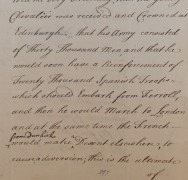 Chevalier was received and Crowned at
Edinburgh, that his Army consisted
of Thirty Thousand Men, and that he
would soon have a Reinforcement of
Twenty Thousand Spanish Troops
which should Embark from Ferroll,
and then he would March to London
and at the same time the French
from Dunkirk
would make a Descent elsewhere, to
cause a diversion; this is the ultimate
of